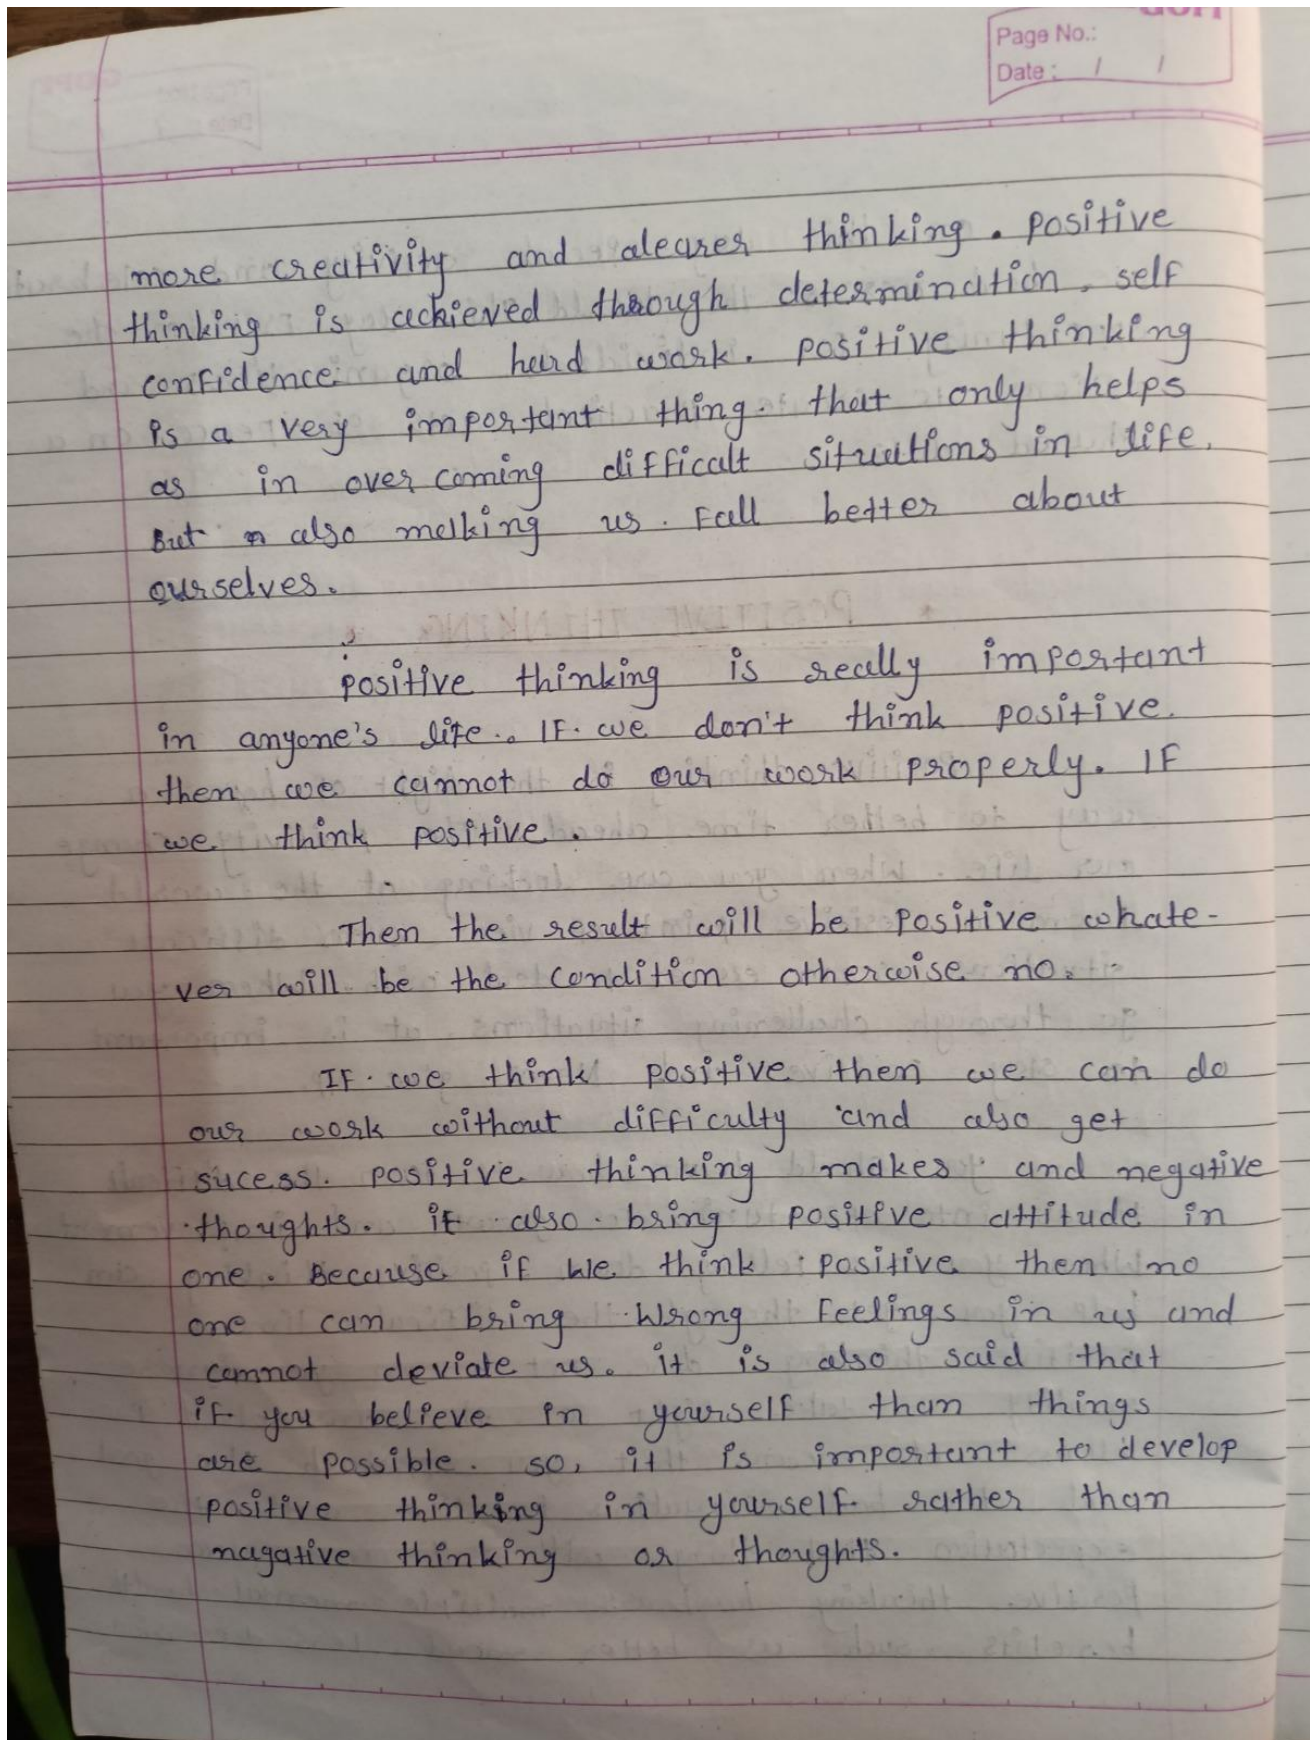 GOFI
Page No.:
Date: / /
more creativity and alearer thinking. positive
thinking is achieved through determination, self
confidence and hard work. positive thinking
is a very important thing. that only helps
as in over coming difficalt situations in life.
But also making us. Fall better about
ourselves.
POSITIVE THINKING
positive thinking is really important
in anyone's life.. IF. we don't think positive.
then we cannot do our work properly. IF
we think positive.
Then the result will be positive whate-
ver will be the condition otherwise no.
IF. we think positive then we can do
our work without difficulty and also get
sucess. positive thinking makes and negative
thoughts. it also. bring positive attitude in
one. Because if We think positive then no
one can bring Wrong Feelings in us and
cannot deviate us. it is also said that
if you believe in yourself than things
are possible. so, it is important to develop
positive thinking in yourself rather than
nagative thinking or thoughts.